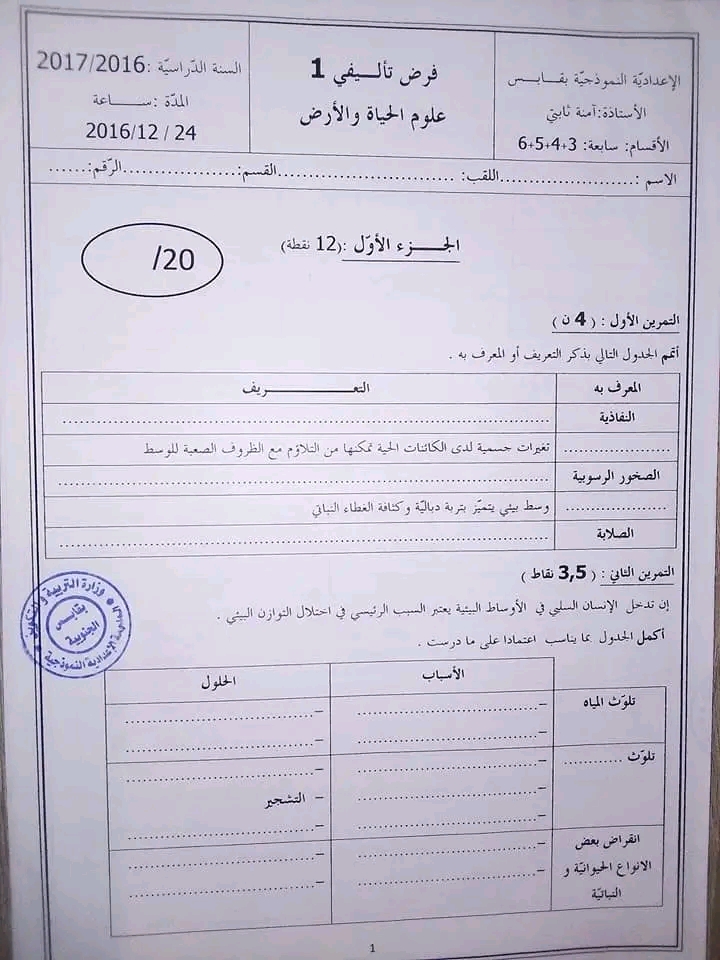 الإعداديّة النموذجيّة بقـــابس
الأستاذة:آمنة ثابتي
الأقسام: سابعة: 3+4+5+6
فرض تأليـــفي 1
علوم الحياة والأرض
السنة الدّراسيّة :2017/2016
المدّة :ســـاعة
2016/12 / 24
الاسم :......................اللقب: ............................القسم:....................الرّقم:......
الجـــــزء الأوّل :(12 نقطة)
/20
التمرين الأول : ( 4 ن )
أتمم الجدول التالي بذكر التعريف أو المعرف به .
المعرف به التعـــــــــريف
النفاذية ................................................
.................... تغيرات جسمية لدى الكائنات الحية تمكنها من التلاؤم مع الظروف الصعبة للوسط
الصخور الرسوبية ................................................
.................... وسط بيئي يتميّز بتربة دباليّة وكثافة الغطاء النباتي
الصلابة ................................................
التمرين الثاني : ( 3,5 نقاط )
إن تدخل الإنسان السلبي في الأوساط البيئية يعتبر السبب الرئيسي في اختلال التوازن البيئي .
أكمل الجدول بما يناسب اعتمادا على ما درست .
الأسباب الحلول
تلوّث المياه
-........................ -........................
-........................ -........................
تلوّث ............
-........................ -........................
-........................ - التشجير
-........................ -........................
انقراض بعض
الانواع الحيوانيّة و
النباتيّة
-........................ -........................
-........................ -........................
وزارة التربية و التكوين
الإعدادية النموذجية
بقابس
الجنوبية
1